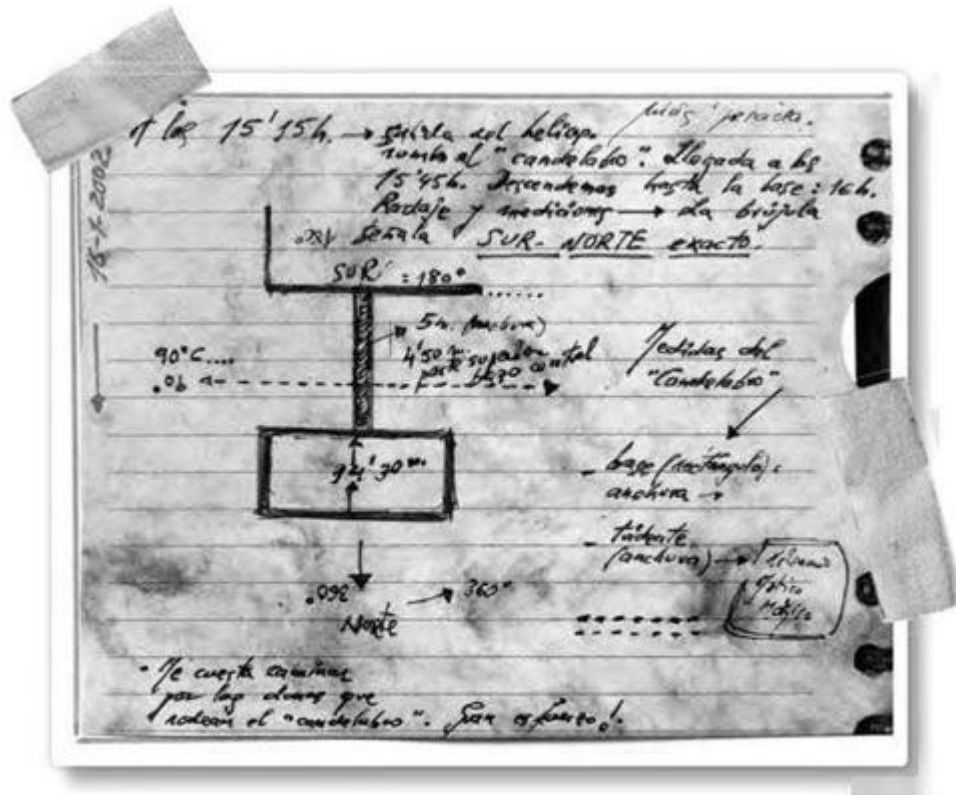 A las 15'15h. → salida del helicop.
rumbo al "candelabro". Llegada a las
15'45h. Descendemos hasta la base: 16h.
Rodaje y mediciones → La brújula
señala SUR-NORTE exacto.
2002
180°
SUR = 180° ......
5 m. (anchura)
4'50 m.
90°C....
90.
Medidas del
"Candelabro"
94'30 m.
- base (rectángulo):
anchura →
- tridente
(anchura) →
360°
360°
Norte
- Me cuesta caminar
por las dunas que
rodean el "candelabro". ¡Gran esfuerzo!